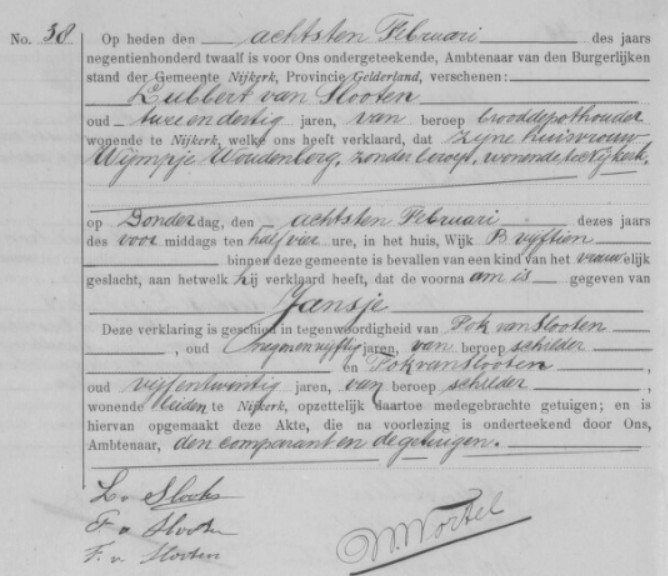 No. 38 Op heden den achtsten Februari des jaars
negentienhonderd twaalf is voor Ons ondergeteekende, Ambtenaar van den Burgerlijken
stand der Gemeente Nijkerk, Provincie Gelderland, verschenen:
Lubbert van Slooten
oud twee en dertig jaren, van beroep brooddepothouder
wonende te Nijkerk, welke ons heeft verklaard, dat zijne huisvrouw
Wijmpje Woudenberg, zonder beroep, wonende te Nijkerk,
op Donderdag, den achtsten Februari dezes jaars
des voormiddags ten half vier ure, in het huis, Wijk B vijftien
binnen deze gemeente is bevallen van een kind van het vrouwelijk
geslacht, aan hetwelk hij verklaard heeft, dat de voornaam is gegeven van
Jansje
Deze verklaring is geschied in tegenwoordigheid van Fok van Slooten
, oud negenenvijftig jaren, van beroep schilder
en Fok van Slooten,
oud vijfentwintig jaren, van beroep schilder,
wonende beiden te Nijkerk, opzettelijk daartoe medegebrachte getuigen; en is
hiervan opgemaakt deze Akte, die na voorlezing is onderteekend door Ons,
Ambtenaar, den comparant en de getuigen.
L. v Slooten
F v Slooten
F. v Slooten
Wortel